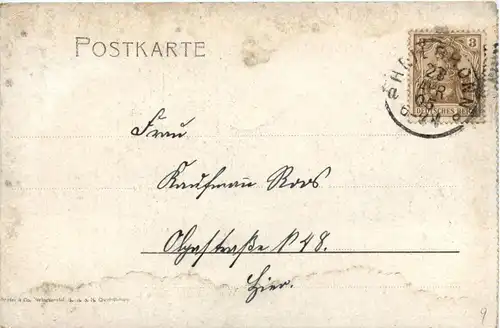 POSTKARTE
3
23
APR
05
DEUTSCHES REICH
Frau
Kaufmann Roos
Olgastraße N 48.
Hier.
9